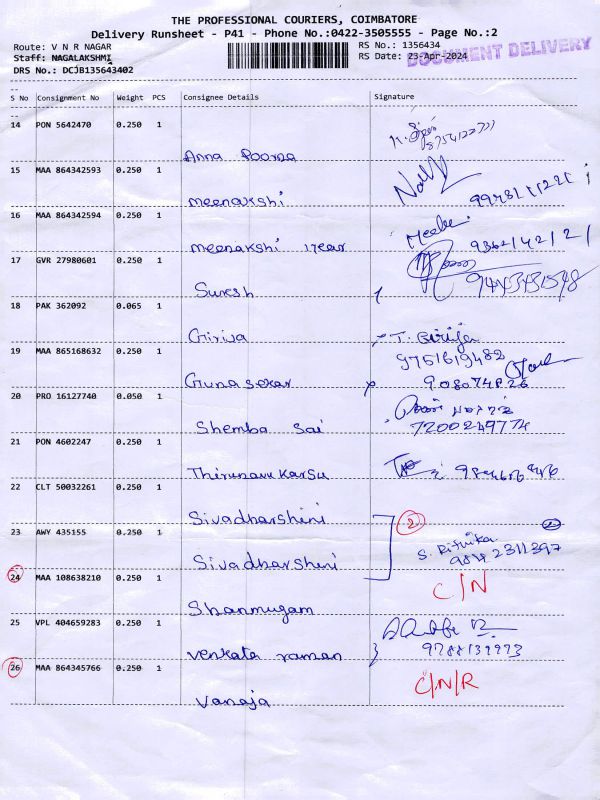 THE PROFESSIONAL COURIERS, COIMBATORE
Delivery Runsheet - P41 - Phone No.:0422-3505555 - Page No.:2
Route: V N R NAGAR RS No.: 1356434
Staff: NAGALAKSHMI RS Date: 23-Apr-2024
DOCUMENT DELIVERY
DRS No.: DCJB135643402
S No Consignment No Weight PCS Consignee Details Signature
14 PON 5642470 0.250 1
8754122777
Anna Poorna
15 MAA 864342593 0.250 1
meenakshi
16 MAA 864342594 0.250 1
meenakshi
17 GVR 27980601 0.250 1
Suresh
18 PAK 362092 0.065 1
Girija T. Girija
19 MAA 865168632 0.250 1 9751619482
Guna sekar
20 PRO 16127740 0.050 1
Shemba Sai 7200249774
21 PON 4602247 0.250 1
Thirunavukarsu
22 CLT 50032261 0.250 1
Sivadharshini 2
23 AWY 435155 0.250 1
S. Rithika
Sivadharshini 9842311397
24 MAA 108638210 0.250 1 C/N
Shanmugam
25 VPL 404659283 0.250 1
venkata raman
26 MAA 864345766 0.250 1 C/N/R
Vanaja